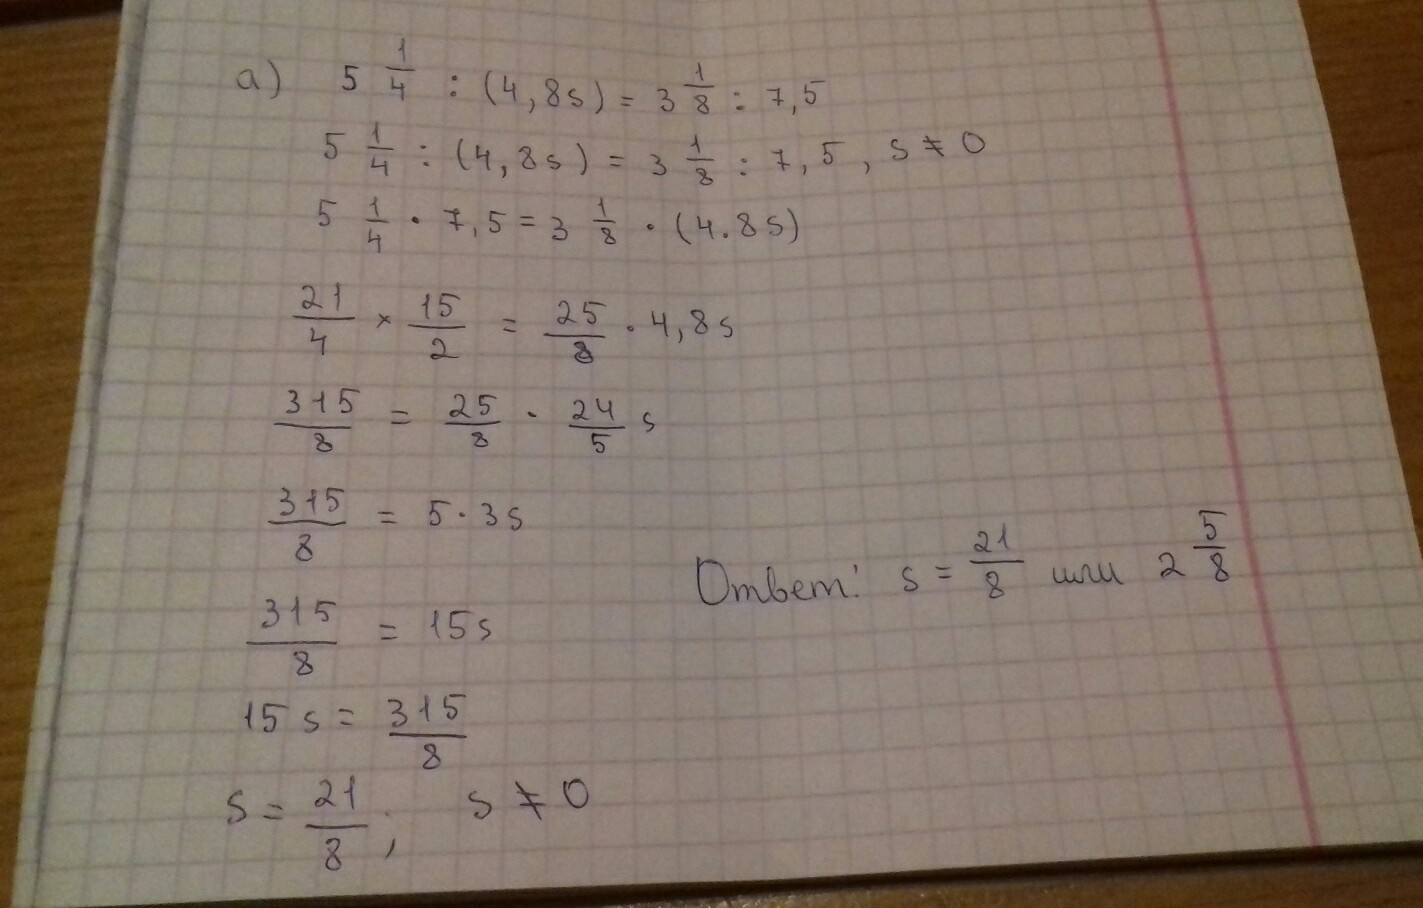 а) 5 1/4 : (4,8s) = 3 1/8 : 7,5
5 1/4 : (4,8s) = 3 1/8 : 7,5 , s ≠ 0
5 1/4 · 7,5 = 3 1/8 · (4.8s)
21/4 × 15/2 = 25/8 · 4,8s
315/8 = 25/8 · 24/5 s
315/8 = 5·3s
315/8 = 15s
15s = 315/8
s = 21/8 ; s ≠ 0
Ответ: s = 21/8 или 2 5/8